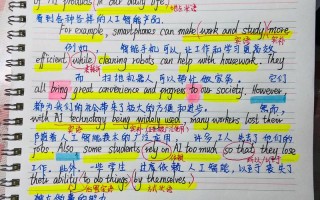 of AI products in our daily life.
看到各种各样的人工智能产品。
For example, smartphones can make (work and study) more
例如 智能手机可以让工作和学习更高效
efficient, (while) cleaning robots can help with housework. They
而 扫地机器人可以帮忙做家务。 它们
all bring great convenience and progress to our society. However,
都为我们的社会带来了极大的方便和进步。 然而,
with AI technology being widely used, many workers lost their
人工智能技术的广泛应用 许多工人失去了他们的
jobs. Also, some students rely on AI too much so that they lose
工作。此外,一些学生 过度依赖人工智能,以至于丧失了
their ability (to do things) by themselves.